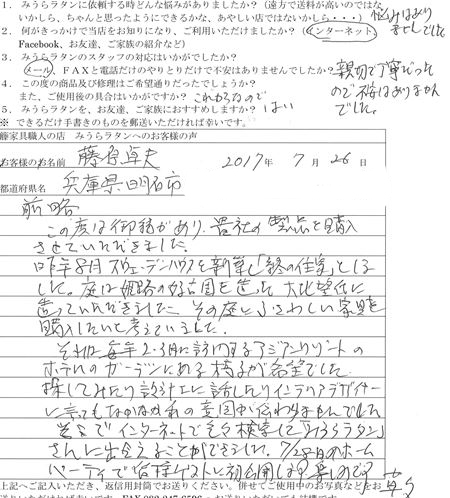 1. みうらラタンに依頼する時どんな悩みがありましたか?(遠方で送料が高いのではな 悩みはあり
いかしら、ちゃんと思ったようにできるかな、あやしい店ではないかしら・・・) ませんでした
2. 何がきっかけで当店をお知りになり、ご利用いただけましたか?(インターネット、
Facebook、お友達、ご家族の紹介など)
3. みうらラタンのスタッフの対応はいかがでしたか?
(メール、FAXと電話だけのやりとりだけで不安はありませんでしたか? 親切で丁寧だった
4. この度の商品及び修理はご希望通りだったでしょうか? ので不安はありません
また、ご使用後の具合はいかがですか? これからなので でした。
5. みうらラタンを、お友達、ご家族におすすめしますか? はい
※ できるだけ手書きのものを郵送いただければ幸いです。
藤家具職人の店 みうらラタンへのお客様の声
お客様のお名前 藤原卓夫 2017年 7月 26日
都道府県名 兵庫県明石市
前略
この度は御縁があり、貴社の製品を購入
させていただきました。
昨年8月スウェーデンハウスを新築し「終の住実」としま
した。庭は姫路の好古園を造った 大北望氏に
造っていただきました。その庭にふさわしい家具を
購入したいと考えていました。
それは毎年2・3月に訪問するアジアンリゾートの
ホテルのガーデンにある椅子が希望でした
探してみたり設計士に話したりインテリアデザイナー
に言ってもなかなか私の意図が伝わりませんでした
そこでインターネットで色々検索して「みうらラタン」
さんに出会えることができました。7/28日のホーム
パーティで皆様ゲストに初公開は
上記へご記入いただき、返信用封筒でお送りください。併せてご使用中のお写真などお